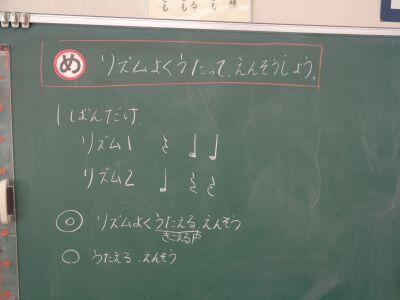 め リズムよくうたって、えんそうしよう。
1ばんだけ
リズム1 𝄽 ♩ ♩
リズム2 ♩ 𝄽 𝄽
◎ リズムよくうたえる、えんそう
きこえる声
○ うたえる、えんそう